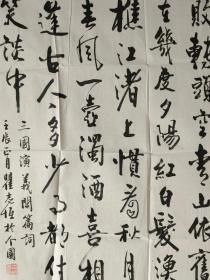 敗轉頭空青山依舊
在幾度夕陽紅白髮漁
樵江渚上慣看秋月
春風一壺濁酒喜相
逢古今多少事都付
笑談中
三國演義開篇詞
壬辰正月瞿